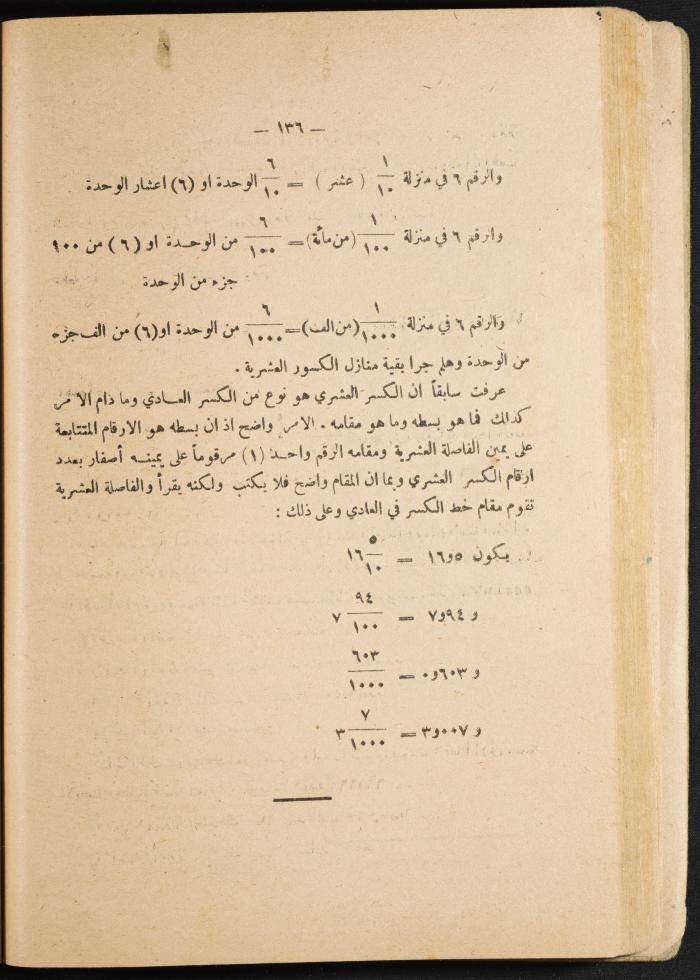 — ١٣٦ —
والرقم ٦ في منزلة ١/١٠ (عشر) = ٦/١٠ الوحدة او (٦) اعشار الوحدة
والرقم ٦ في منزلة ١/١٠٠ (من مائة) = ٦/١٠٠ من الوحدة او (٦) من ١٠٠
جزء من الوحدة
والراقم ٦ في منزلة ١/١٠٠٠ (من الف) = ٦/١٠٠٠ من الوحدة او (٦) من الف جزء
من الوحدة وهلم جرا بقية منازل الكسور العشرية .
عرفت سابقاً ان الكسر العشري هو نوع من الكسر العادي وما دام الامر
كذالك فما هو بسطه وما هو مقامه . الامر واضح اذ ان بسطه هو الارقام المتتابعة
على يمين الفاصلة العشرية ومقامه الرقم واحد (١) مرقوماً على يمينه أصفار بعدد
ارقام الكسر العشري وبما ان المقام واضح فلا يكتب ولكنه يقرأ والفاصلة العشرية
تقوم مقام خط الكسر في العادي وعلى ذلك :
يكون ٥و١٦ = ٥/١٠ ١٦
و ٩٤و٧ = ٩٤/١٠٠ ٧
و ٦٠٣و٠ = ٦٠٣/١٠٠٠
و ٠٠٧و٣ = ٧/١٠٠٠ ٣